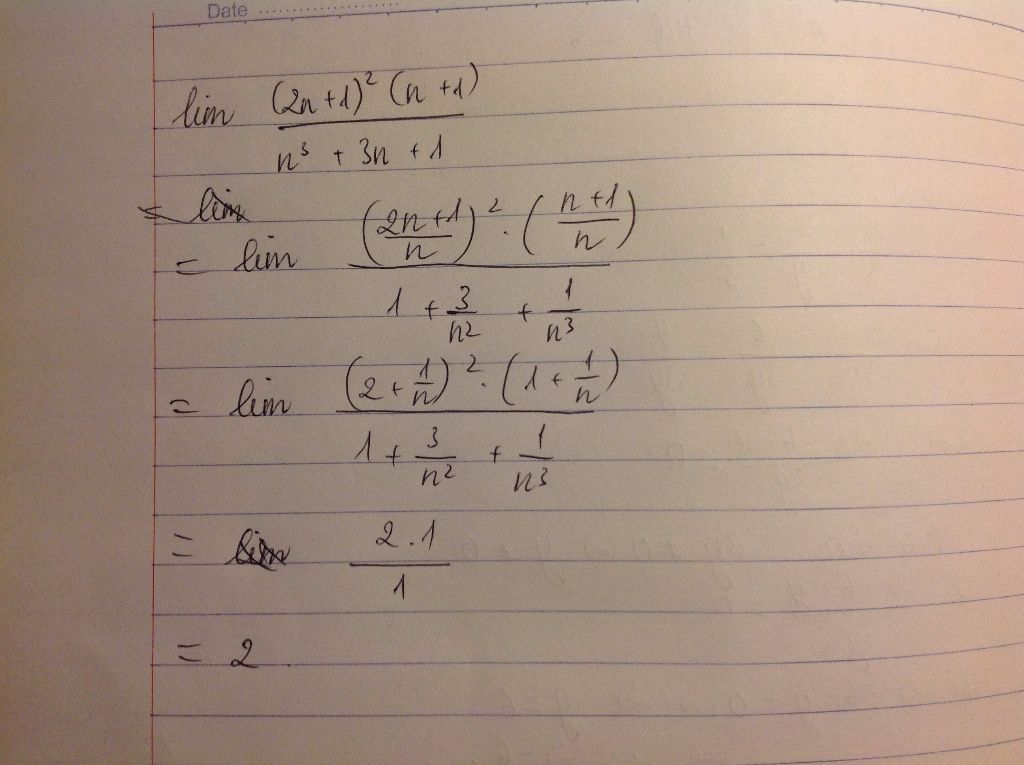 Date ..............................
lim (2n+1)² (n+1) / n³ + 3n + 1
= lim
= lim ((2n+1)/n)² · ((n+1)/n) / 1 + 3/n² + 1/n³
= lim (2 + 1/n)² · (1 + 1/n) / 1 + 3/n² + 1/n³
= lim 2 . 1 / 1
= 2